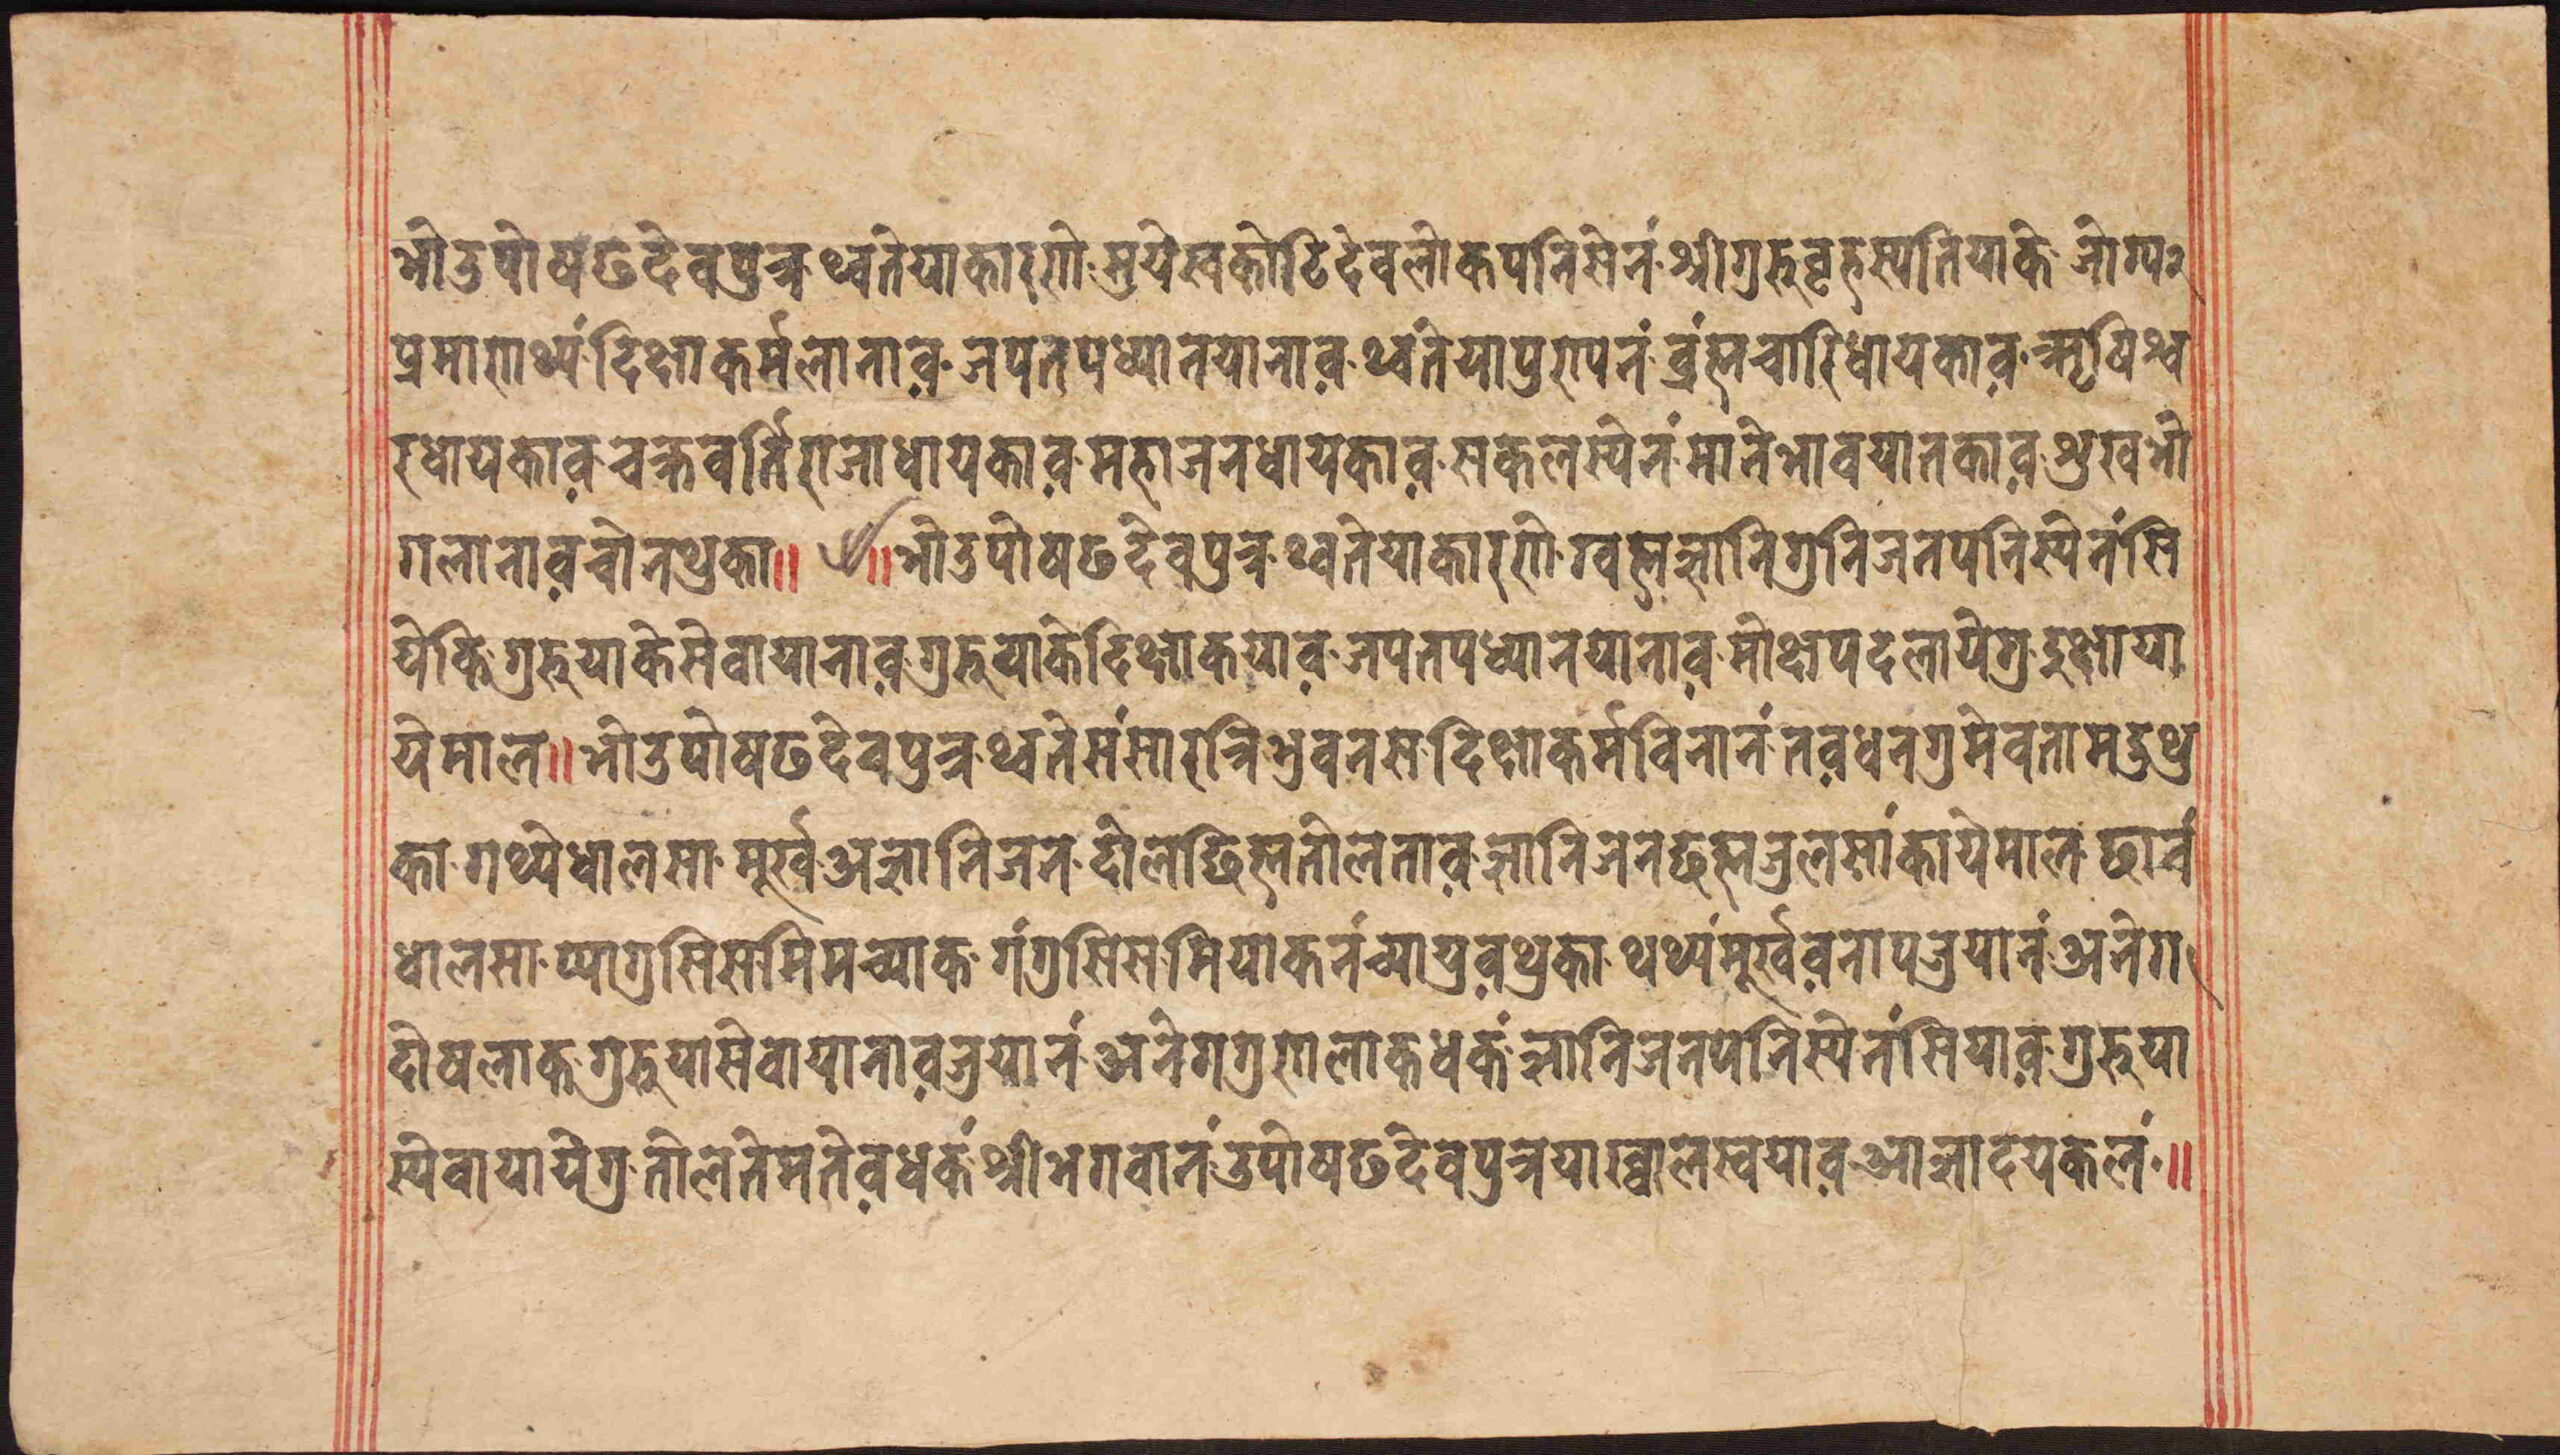 भोउपोषढदेवपुत्र थ्वतेयाकारणे सुयेस्वकोटिदेवलोकपनिसेनं श्रीगुरुवृहस्पतियाके जोग्य२
प्रमाणथ्यं दिक्षाकर्मलानाव़ जपतपध्यानयानाव़ थ्वतेयापुरापनं व्रंह्मचारिधायकाव़ ऋषिश्व
रधायकाव़ चक्रवर्तिराजाधायकाव़ महाजनधायकाव़ सकलस्येनं मानेभावयातकाव़ शुखभो
गलानाव़चोनथुका॥ ॥भोउपोषढदेवपुत्र थ्वतेयाकारणे ग्वह्मज्ञानिगुनिजनपनिस्येनंसि
येकि गुरुयाकेसेवायानाव़ गुरुयाकेदिक्षाकयाव़ जपतपध्यानयानाव़ मोक्षपदलायेगु इक्षाया
येमाल॥भोउपोषढदेवपुत्र थ्वतेसंसारत्रिभुवनस दिक्षाकर्मविनानं तव़धनगुमेवतामदुथु
का गथ्येधालसा मूर्ख अज्ञानिजन दोलछिह्मतोलताव़ ज्ञानिजनछह्मजुलसांकायेमाल छानं
धालसा प्यागुसिसमिमच्याक गंगुसिसमियाकनंच्यायुव़थुका थथ्यंमूर्खव़नापजुयानं अनेग
दोषलाक गुरुयासेवायानाव़जुयानं अनेगगुणलाकधकं ज्ञानिजनपनिस्येनंसियाव़ गुरुया
स्येवायायेगु तोलतेमतेव़धकं श्रीभगवानं उपोषढदेवपुत्रयाख्वालस्वयाव़ आज्ञादयकलं ॥